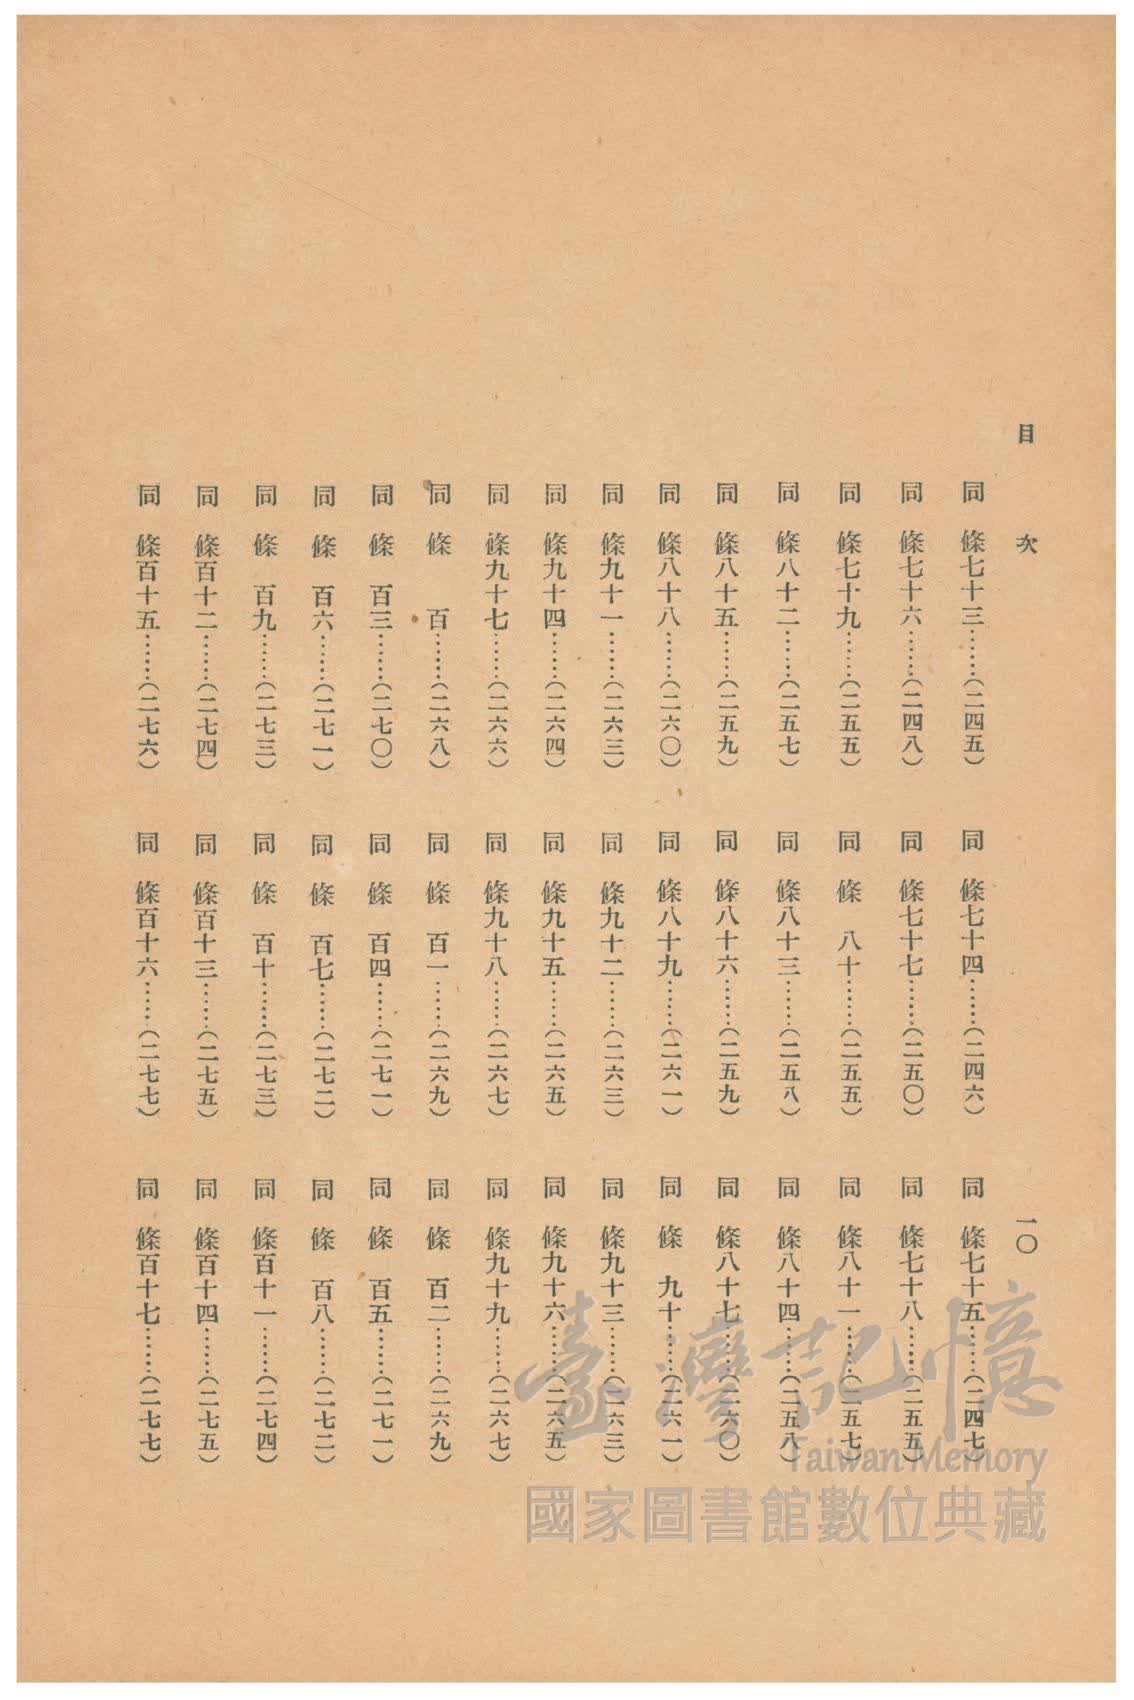 目次
一〇
同條七十三……(二四五)
同條七十四……(二四六)
同條七十五……(二四七)
同條七十六……(二四八)
同條七十七……(二五〇)
同條七十八……(二五五)
同條七十九……(二五五)
同條八十……(二五五)
同條八十一……(二五七)
同條八十二……(二五七)
同條八十三……(二五八)
同條八十四……(二五八)
同條八十五……(二五九)
同條八十六……(二五九)
同條八十七……(二六〇)
同條八十八……(二六〇)
同條八十九……(二六一)
同條九十……(二六一)
同條九十一……(二六三)
同條九十二……(二六三)
同條九十三……(二六三)
同條九十四……(二六四)
同條九十五……(二六五)
同條九十六……(二六五)
同條九十七……(二六六)
同條九十八……(二六七)
同條九十九……(二六七)
同條百……(二六八)
同條百一……(二六九)
同條百二……(二六九)
同條百三……(二七〇)
同條百四……(二七一)
同條百五……(二七一)
同條百六……(二七一)
同條百七……(二七二)
同條百八……(二七二)
同條百九……(二七三)
同條百十……(二七三)
同條百十一……(二七四)
同條百十二……(二七四)
同條百十三……(二七五)
同條百十四……(二七五)
同條百十五……(二七六)
同條百十六……(二七七)
同條百十七……(二七七)
臺灣記憶
Taiwan Memory
國家圖書館數位典藏